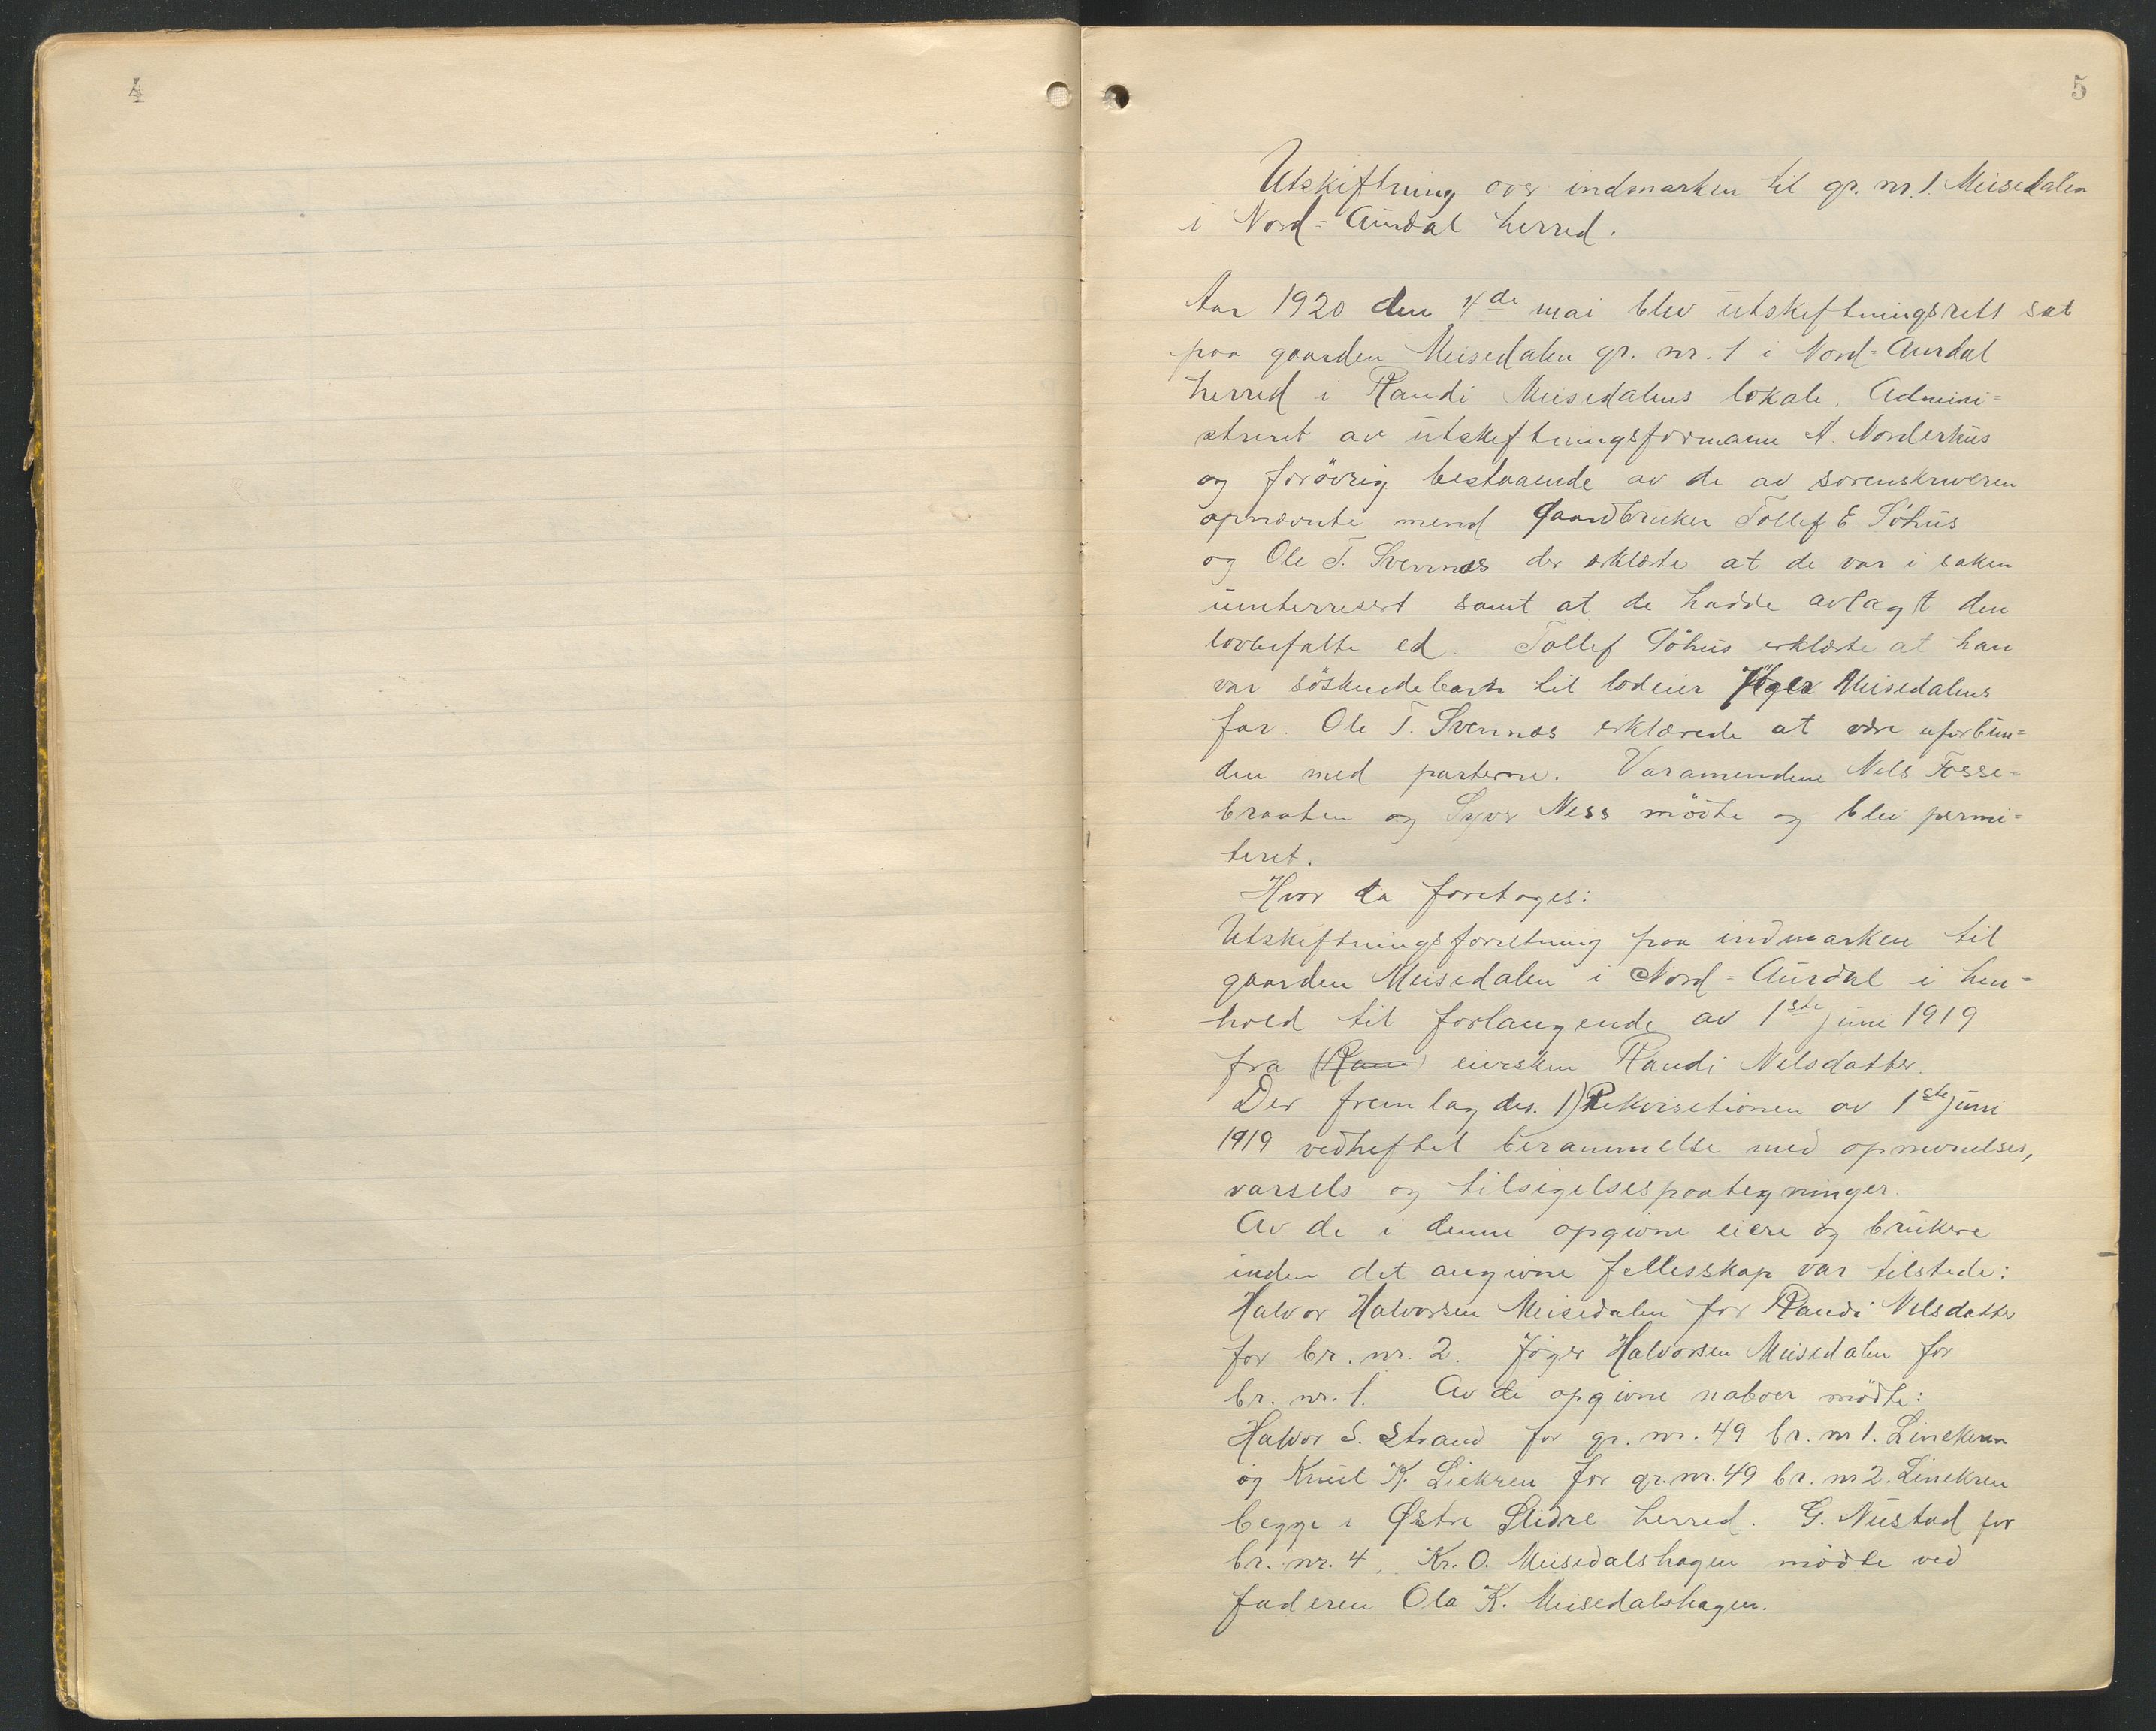 4
5
Utskiftning over indmarken til gr. nr. 1. Meisedalen
i Nord=Aurdal herred.
Aar 1920 den 4de mai blev utskiftningsrett sat
paa gaarden Meisedalen gr. nr. 1 i Nord=Aurdal
herred i Randi Meisedalens lokale. Admini=
streret av utskiftningsformann A. Norderhus
og forövrig bestaaende av de av sorenskriveren
opnævnte mend Gaardbruker Tollef E. Töhus
og Ole T. Svennes der erklærte at de var i saken
uinterresert samt at de hadde avlagt den
lovbefalte ed. Tollef Töhus erklærte at han
var söskendebarn til lodeier Jöger Meisedalens
far. Ole T. Svennes erklærede at være uforbun=
den med parterne. Varamendene Nels Fosse=
braaten og Syver Ness mödte og blev permi=
teret.
Hvor da foretoges:
Utskiftningsforretning paa indmarken til
gaarden Meisedalen i Nord=Aurdal i hen=
hold til forlangende av 1ste juni 1919
fra (Ran) eiersken Randi Nilsdatter.
Der fremlagdes. 1) Rekvisitionen av 1ste juni
1919 vedheftet berammelse med opnevnelses,
varsels og tilsigelsespaategninger.
Av de i denne opgivne eiere og brukere
inden det angivne fellesskap var tilstede:
Halvor Halvorsen Meisedalen for Randi Nilsdatter
for br. nr. 2. Jöger Halvorsen Meisedalen for
br. nr. 1. Av de opgivne naboer mödte:
Halvor S. Strand for gr. nr. 49 br. nr 1. Liaekren
og Knut K. Liekren for gr. nr. 49 br. nr 2. Liaekren
begge i Østre Slidre herred. G. Neistad for
br. nr. 4. Kr. O. Meisedalshagen mödte ved
faderen Ola K. Meisedalshagen.